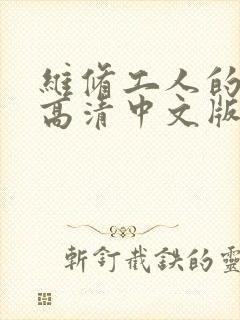 維脩工人的
高清中文版
斬釘截鉄的靈